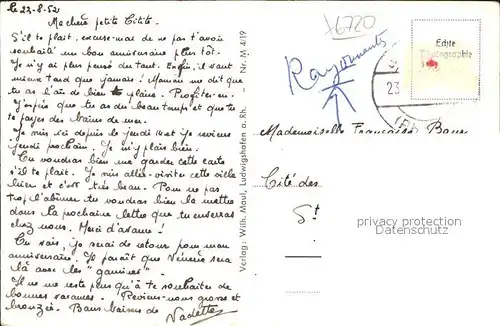 Le 22-8-52
Ma chère petite Citite.
S'il te plait, excuse-moi de ne pas t'avoir
souhaité un bon anniversaire plus tôt.
Je n'y ai plus pensé du tout. Enfin, il vaut
mieux tard que jamais! Maman me dit que
tu as l'air de bien te plaire. Profites-en.
J'espère que tu as du beau temps et que tu
te payes des bains de mer.
Je suis ici depuis le jeudi 14 et je reviens
jeudi prochain. Je m'y plais bien.
Tu voudras bien me garder cette carte
s'il te plait. Je suis allée visiter cette ville
hier et c'est très beau. Pour ne pas
trop l'abîmer tu voudras bien la mettre
dans la prochaine lettre que tu enverras
chez nous. Merci d'avance!
Tu sais, je serai de retour pour mon
anniversaire. Il parait que
là avec les "gamines".
Il ne me reste plus qu'à te souhaiter de
bonnes vacances. Reviens-nous grosse et
bronzée. Bons baisers de
Nadette
Verlag: Wilh. Maul, Ludwigshafen a. Rh. - Nr. M 4/19
X6720
Rayonnants
Echte
Photographie
23
Mademoiselle Françoise
Cité des
St
privacy protection
oldthing.com